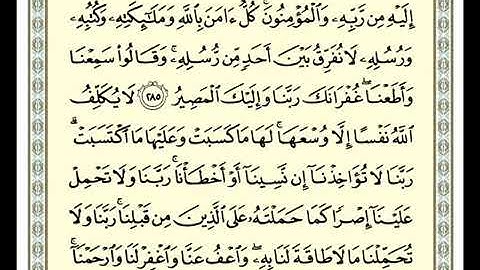 إِلَيْهِ مِن رَّبِّهِۦ وَٱلْمُؤْمِنُونَۚ كُلٌّ ءَامَنَ بِٱللَّهِ وَمَلَـٰٓئِكَتِهِۦ وَكُتُبِهِۦ
وَرُسُلِهِۦ لَا نُفَرِّقُ بَيْنَ أَحَدٍ مِّن رُّسُلِهِۦۚ وَقَالُوا۟ سَمِعْنَا
وَأَطَعْنَاۖ غُفْرَانَكَ رَبَّنَا وَإِلَيْكَ ٱلْمَصِيرُ ٢٨٥ لَا يُكَلِّفُ
ٱللَّهُ نَفْسًا إِلَّا وُسْعَهَاۚ لَهَا مَا كَسَبَتْ وَعَلَيْهَا مَا ٱكْتَسَبَتْۗ
رَبَّنَا لَا تُؤَاخِذْنَآ إِن نَّسِينَآ أَوْ أَخْطَأْنَاۚ رَبَّنَا وَلَا تَحْمِلْ
عَلَيْنَآ إِصْرًا كَمَا حَمَلْتَهُۥ عَلَى ٱلَّذِينَ مِن قَبْلِنَاۚ رَبَّنَا وَلَا
تُحَمِّلْنَا مَا لَا طَاقَةَ لَنَا بِهِۦۖ وَٱعْفُ عَنَّا وَٱغْفِرْ لَنَا وَٱرْحَمْنَآۚ